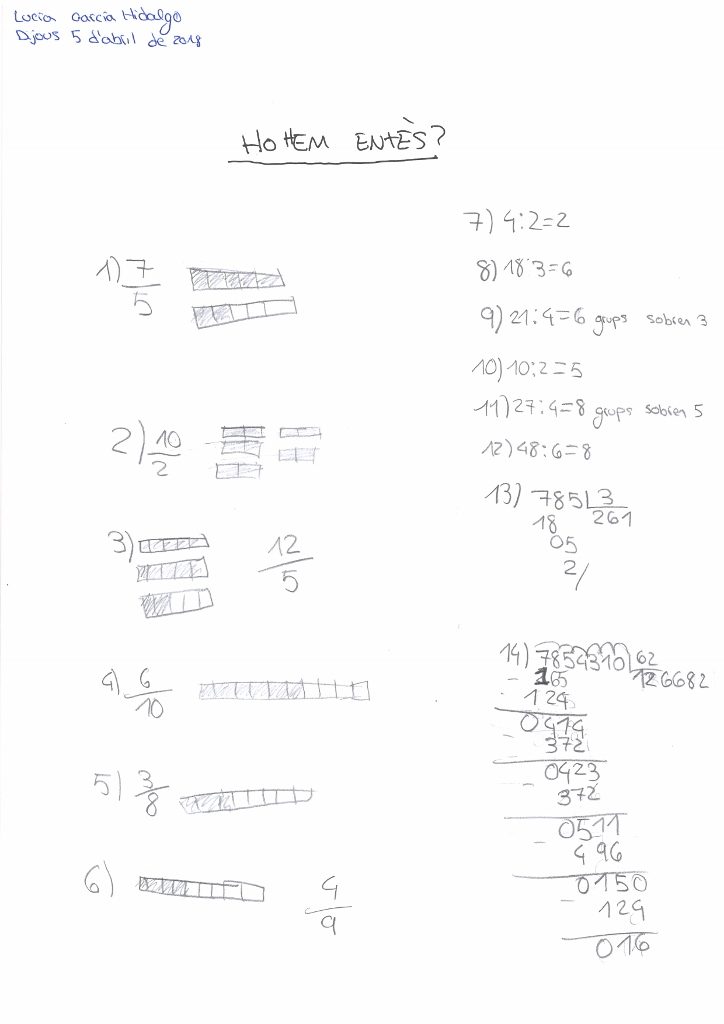 Lucia Garcia Hidalgo
Dijous 5 d'abril de 2018
HO HEM ENTÈS?
1) 7
5
2) 10
2
3) 12
5
4) 6
10
5) 3
8
6) 4
9
7) 4:2=2
8) 18:3=6
9) 21:4=6 grups sobren 3
10) 10:2=5
11) 27:4=8 grups sobren 5
12) 48:6=8
13) 785 3
18 261
05
2/
14) 7854310 62
165 126682
- 124
0414
- 372
0423
- 372
0511
- 496
0150
- 124
016